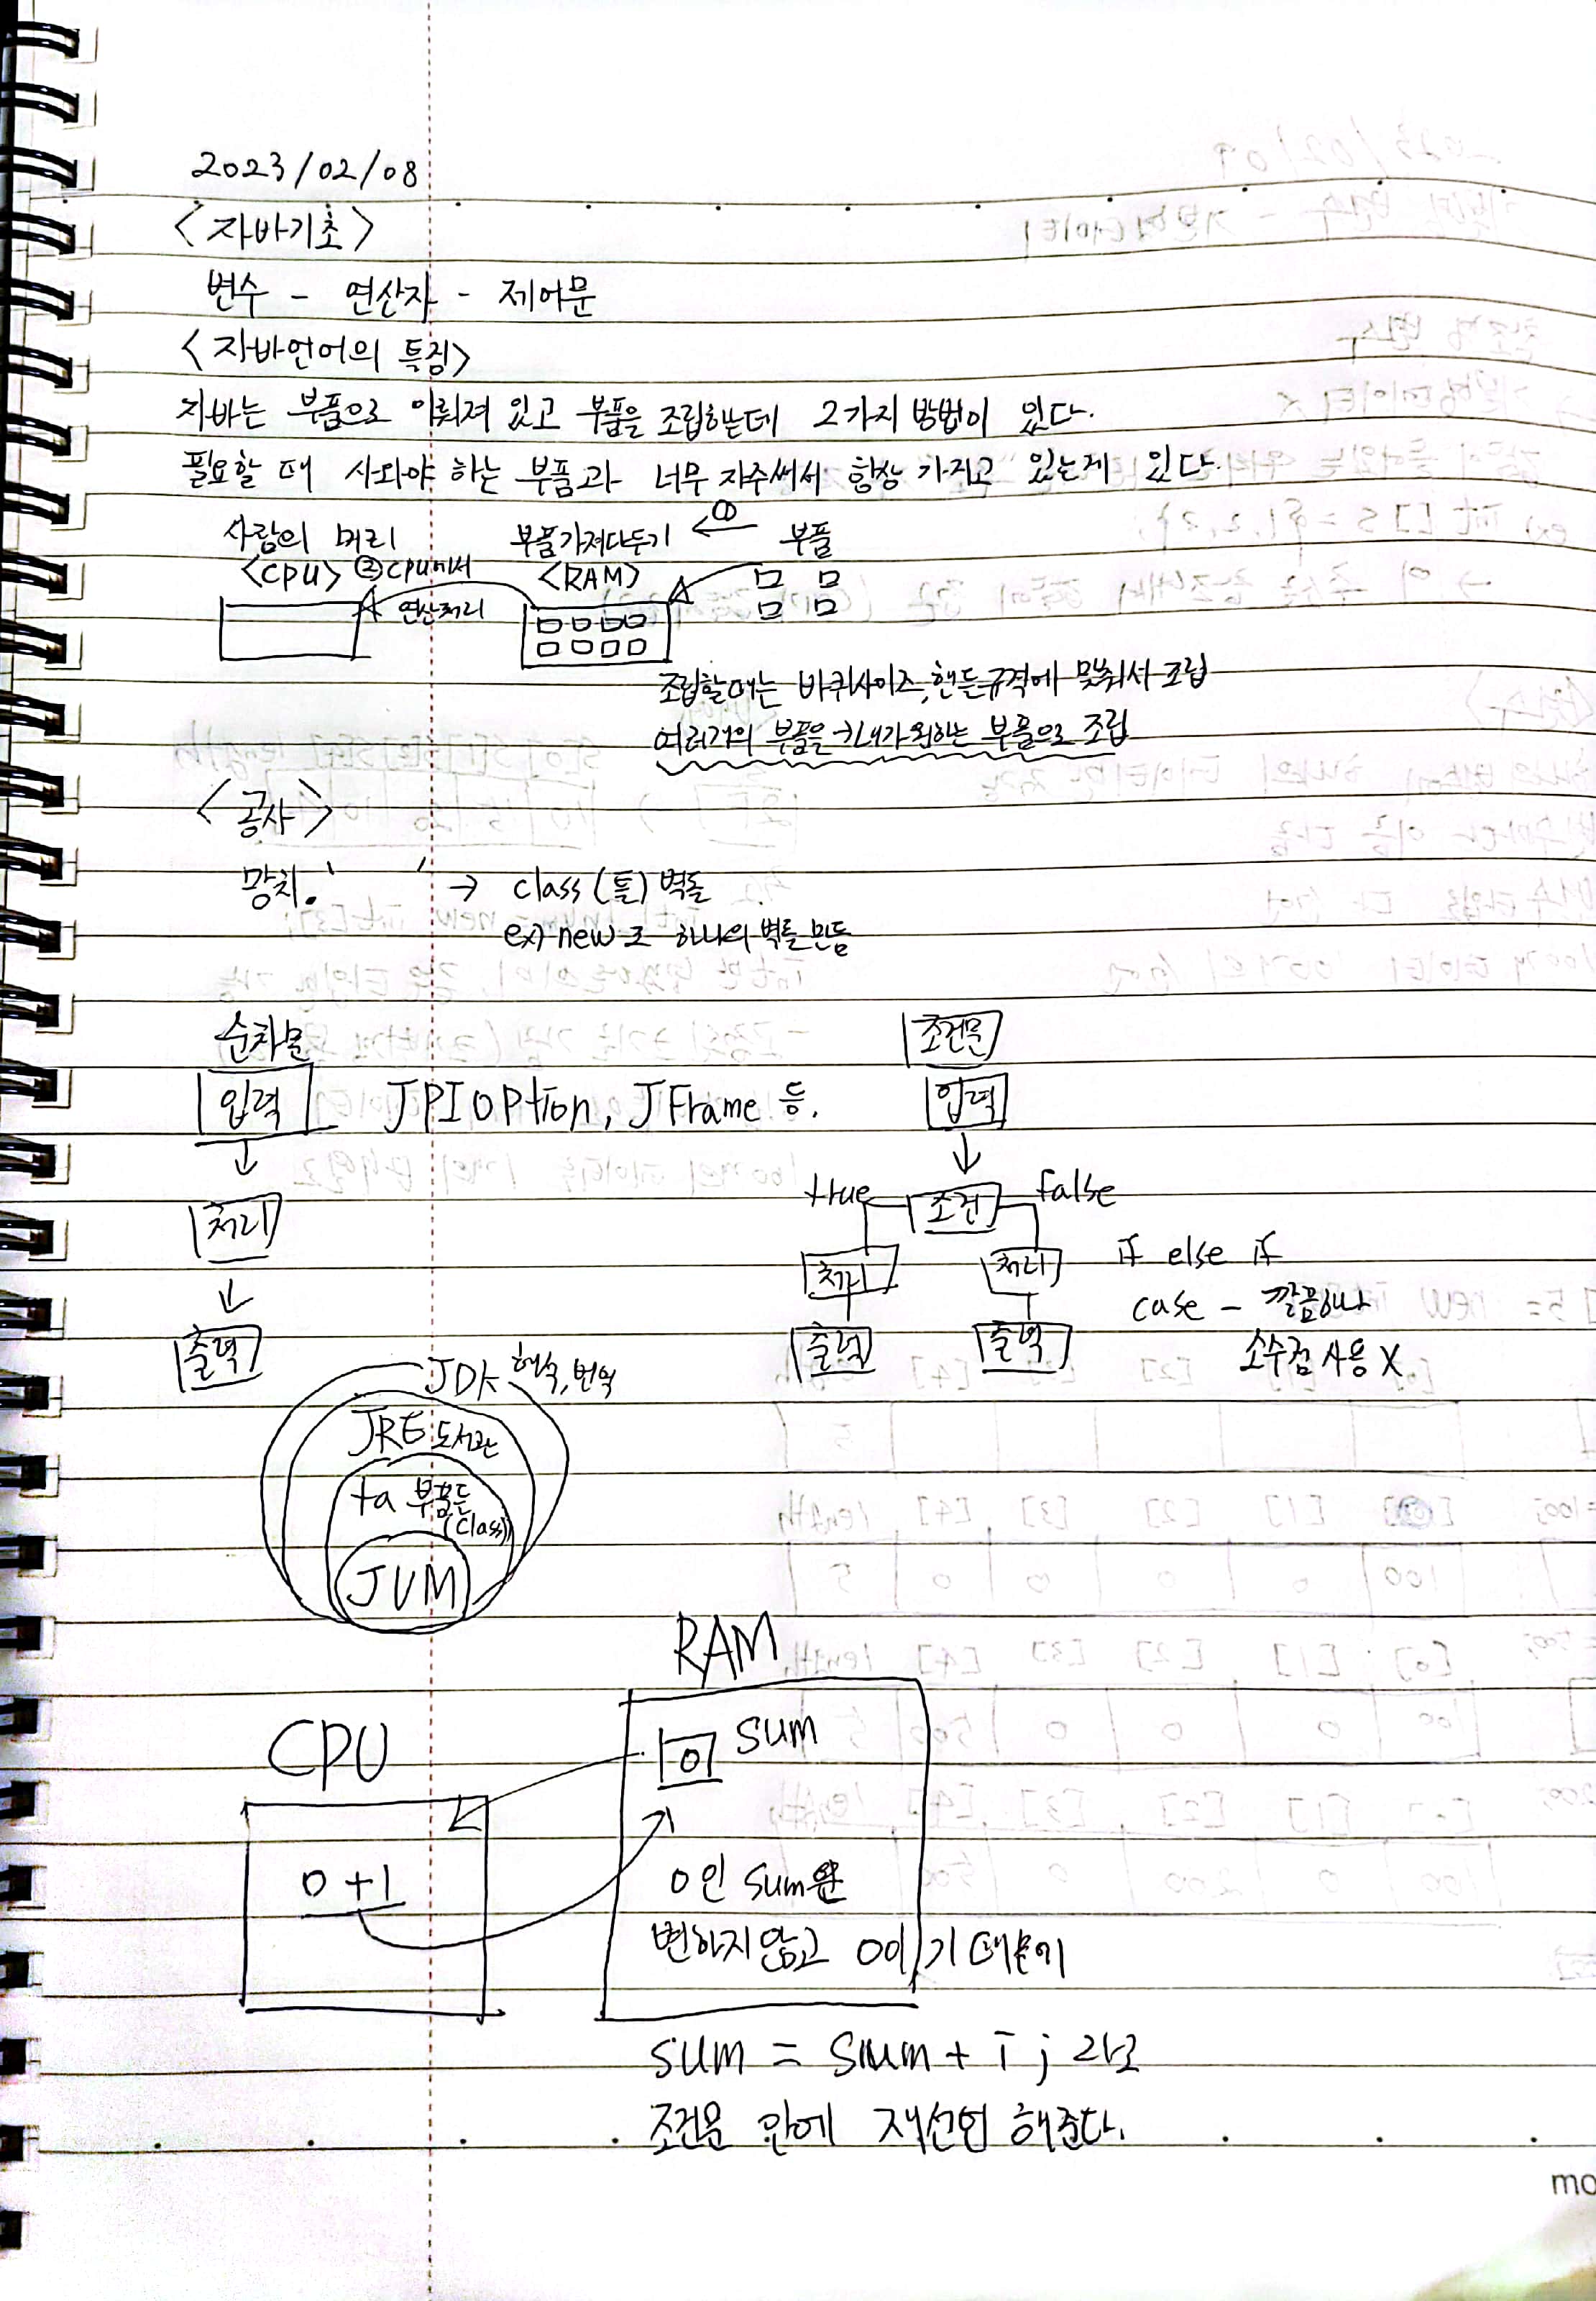 2023/02/08
<자바기초>
변수 - 연산자 - 제어문
<자바언어의 특징>
자바는 부품으로 이뤄져 있고 부품을 조립하는데 2가지 방법이 있다.
필요할 때 사와야 하는 부품과 너무 자주써서 항상 가지고 있는게 있다.
사람의 머리 부품가져다두기 ① 부품
<CPU> ② CPU에서 <RAM>
연산처리
조립할때는 바퀴사이즈, 핸들규격에 맞춰서 조립
여러개의 부품을 내가 원하는 부품으로 조립
<공사>
망치. → class (틀) 벽돌
ex) new로 하나의 벽돌 만듬
순차문 조건문
입력 JPIOPtion, JFrame 등. 입력
true 조건 false
처리
처리 처리 if else if
case - 깔끔하나
출력 출력 출력 소수점 사용 X
JDK 해석, 번역
JRE 도서관
ta 부품들
(class)
JVM
RAM
CPU 0 sum
0+1
0인 sum은
변하지 않고 0이기 때문에
sum = sum + i; 라고
조건문 안에 재선언 해준다.
mo